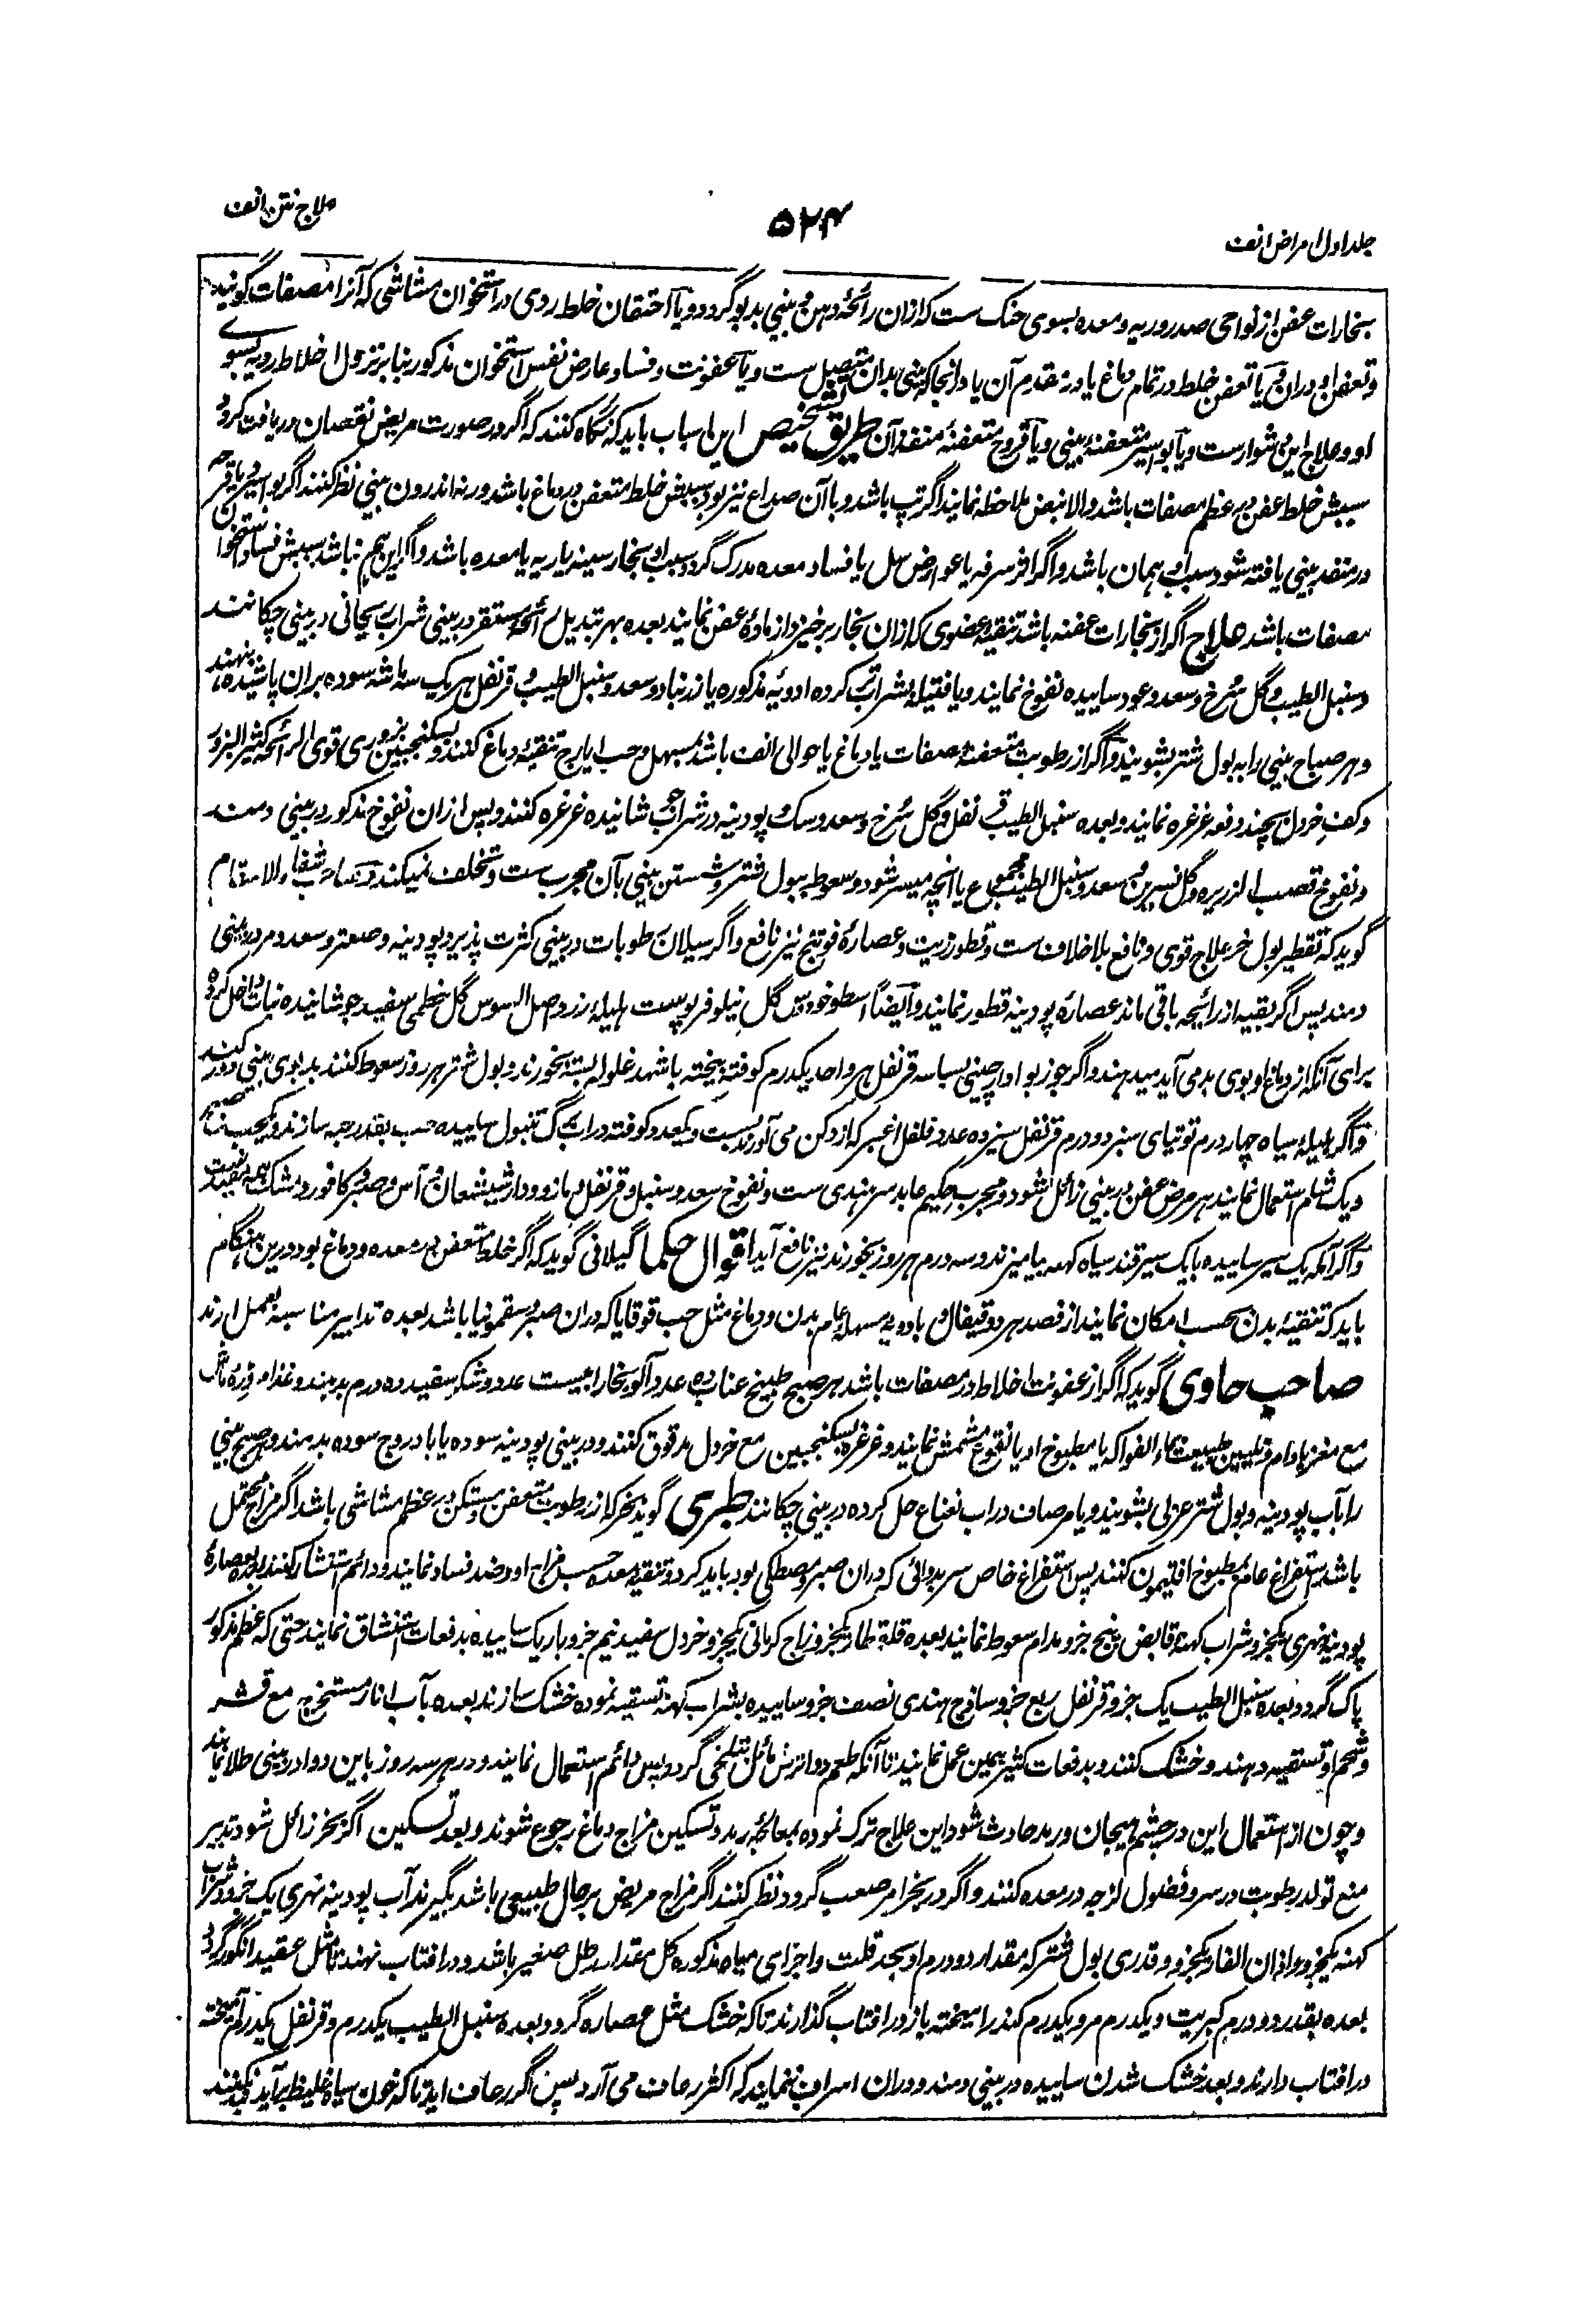 جلد اول امراض انف
۵۲۴
علاج نتن انف
بخارات عفن از نواحی صدر و ریه و معده بسوی حنک ست که ازان رائحهٔ دهن و بینی بدبو گردد و یا احتقان خلط ردی در استخوان مشاشی که آنرا مصفات گویند
و تعفن او دران و یا تعفن خلط در تمام دماغ یا در مقدم آن یا در انجا که بینی بدان متصل ست و یا عفونت و فساد عارض نفس استخوان مذکور بنا بر نزول اخلاط ردیه بسوی
او و علاج این دشوار ست و یا بواسیر متعفنهٔ بینی و یا قروح متعفنهٔ منفذ آن طریق تشخیص این اسباب باید که نگاه کنند که اگر در صورت مریض نقصان دریافت گردد
سببش خلط عفن در عظم مصفات باشد والا نبض ملاحظه نمایند اگر تپ باشد و با آن صداع نیز بود سببش خلط متعفن در دماغ باشد ورنه اندرون بینی نظر کنند اگر بواسیر یا قرحه
در منفذ بینی یافته شود سبب او همان باشد و اگر اثر سرفه یا عوارض سل یا فساد معده مدرک گردد سبب او بخار سینه یا ریه یا معده باشد و اگر این هم نباشد سببش فساد استخوان
مصفات باشد علاج اگر از بخارات عفنه باشد تنقیهٔ عضوی که ازان بخار برخیزد از مادهٔ عفن نمایند بعده بهر تبدیل رائحهٔ مستقر در بینی شراب ریحانی در بینی چکانند
و سنبل الطیب و گل سرخ و سعد و عود ساییده نفوخ نمایند و یا فتیله بشراب تر کرده ادویهٔ مذکوره یا زرنباد و سعد و سنبل الطیب و قرنفل هر یک سه ماشه سوده بران پاشیده بنهند
و هر صباح بینی را به بول شتر بشویند و اگر از رطوبت متعفنهٔ مصفات یا دماغ یا حوالی انف باشد بمسهل و حب ایارج تنقیهٔ دماغ کنند و بسکنجبین بزوری قوی الرائحه کثیر البزور
و کف خردل بچند دفعه غرغره نمایند و بعده سنبل الطیب قرنفل و گل سرخ و سعد و سک و پودینه در شراب جوشانیده غرغره کنند و پس ازان نفوخ مذکور در بینی دمند
و نفوخ قصب الذریره و گل نسرین و سعد و سنبل الطیب مجموع یا انچه میسر شود و سعوط ببول شتر و شستن بینی بآن مجرب ست و تخلف نمیکند و صاحب شفاء الاسقام
گوید که تقطیر بول خر علاج قوی و نافع بلا خلاف ست و قطور زیت و عصارهٔ فوتنج نیز نافع و اگر سیلان رطوبات در بینی کثرت پذیرد پودینه و صعتر و سعد و مر در بینی
دمند پس اگر بقیه از رائحه باقی ماند عصارهٔ پودینه قطور نمایند و ایضاً اسطوخودوس گل نیلوفر پوست هلیلهٔ زرد اصل السوس گل خطمی سفید جوشانیده نبات داخل کرده
برای آنکه از دماغ او بوی بد می آید میدهند و اگر جوزبوا دارچینی بسباسه قرنفل هر واحد یکدرم کوفته بیخته باشهد غلوله بسته بخورند و بول شتر هر روز سعوط کنند بدبوی بینی دور کند
و اگر هلیلهٔ سیاه چهار درم توتیای سبز دو درم قرنفل سیزده عدد فلفل اغبر که از دکن می آورند بست و یکعدد کوفته در آب برگ تنبول ساییده حب بقدر حبه سازند و یکحب صبح
و یک شام استعمال نمایند هر مرض عفن در بینی زائل شود و مجرب حکیم عابد سرهندی ست و نفوخ سعد و سنبل و قرنفل و مازو و دارشیشعان و آس و صبر و کافور و مشک همه مفید ست
و اگر آمله یک سیر ساییده با یک سیر قند سیاه کهنه بیامیزند و سه درم هر روز بخورند نیز نافع آید اقوال حکما گیلانی گوید که اگر خلط متعفن در معده و دماغ بود درین هنگام
باید که تنقیهٔ بدن حسب امکان نمایند از فصد هر دو قیفال و بادویهٔ مسهلهٔ عام بدن و دماغ مثل حب قوقایا که دران صبر و سقمونیا باشد بعده تدابیر مناسبه بعمل آرند
صاحب حاوی گوید که اگر از عفونت اخلاط در مصفات باشد هر صبح طبیخ عناب ده عدد آلو بخارا بیست عدد و شکر سفید ده درم بدهند و غذا مزورهٔ ماش
مع مغز بادام و تلیین طبیعت بماء الفواکه یا مطبوخ او یا نقوع مشمش نمایند و غرغره بسکنجبین مع خردل مدقوق کنند و در بینی پودینه سوده یا بادروج سوده بدمند و هر صبح بینی
را بآب پودینه و بول شتر عربی بشویند و یا مر صاف در آب نعناع حل کرده در بینی چکانند طبری گوید بخر که از رطوبت متعفن متمکن در عظم مشاشی باشد اگر مزاج محتمل
باشد استفراغ عام بمطبوخ افتیمون کنند پس استفراغ خاص سر بدوائی که دران صبر و مصطکی بود باید کرد و تنقیهٔ معده حسب مزاج او و ضد فساد نمایند و دائم استنشاق کنند بعده بعصارهٔ
پودینهٔ نهری یکجزو شراب کهنهٔ قابض پنج جزو مدام سعوط نمایند بعده قلقطار یکجزو زاج کرمانی یکجزو خردل سفید نیم جزو باریک ساییده بدفعات استنشاق نمایند حتی که عظم مذکور
پاک گردد و بعده سنبل الطیب یک جزو قرنفل ربع جزو ساذج هندی نصف جزو ساییده بشراب کهنه تسقیه نموده خشک سازند بعده بآب انار مستخرجه مع قشر
و شحم او تسقیه دهند و خشک کنند و بدفعات کثیر همین عمل نمایند تا آنکه طعم دوا ترش مائل بتلخی گردد پس دائم استعمال نمایند و در هر سه روز باین دوا در بینی طلا نمایند
و چون از استعمال این در چشم هیجان و رمد حادث شود این علاج ترک نموده بمعالجهٔ رمد و تسکین مزاج دماغ رجوع شوند و بعد تسکین اگر بخر زائل شود تدبیر
منع تولد رطوبت در سر و فضول لزجه در معده کنند و اگر در بخر امر صعب گردد نظر کنند اگر مزاج مریض بر حال طبیعی باشد بگیرند آب پودینهٔ نهری یک جزو و شراب
کهنه یکجزو و اذان الفار یکجزو و قدری بول شتر که مقدار دو درم او بحد قلت و اجزای میاه مذکوره کل مقدار رطل صغیر باشد و در آفتاب نهند تا مثل عقید انگور گردد
بعده بقدر دو درم کبریت و یکدرم مر و یکدرم کندر آمیخته باز در آفتاب گذارند تا که خشک مثل عصاره گردد و بعده سنبل الطیب یکدرم و قرنفل یکدرم آمیخته
در آفتاب دارند و بعد خشک شدن ساییده در بینی دمند و دران اسراف ننمایند که اکثر رعاف می آرد پس اگر رعاف آید تا که خون سیاه غلیظ برآید بند نکنند